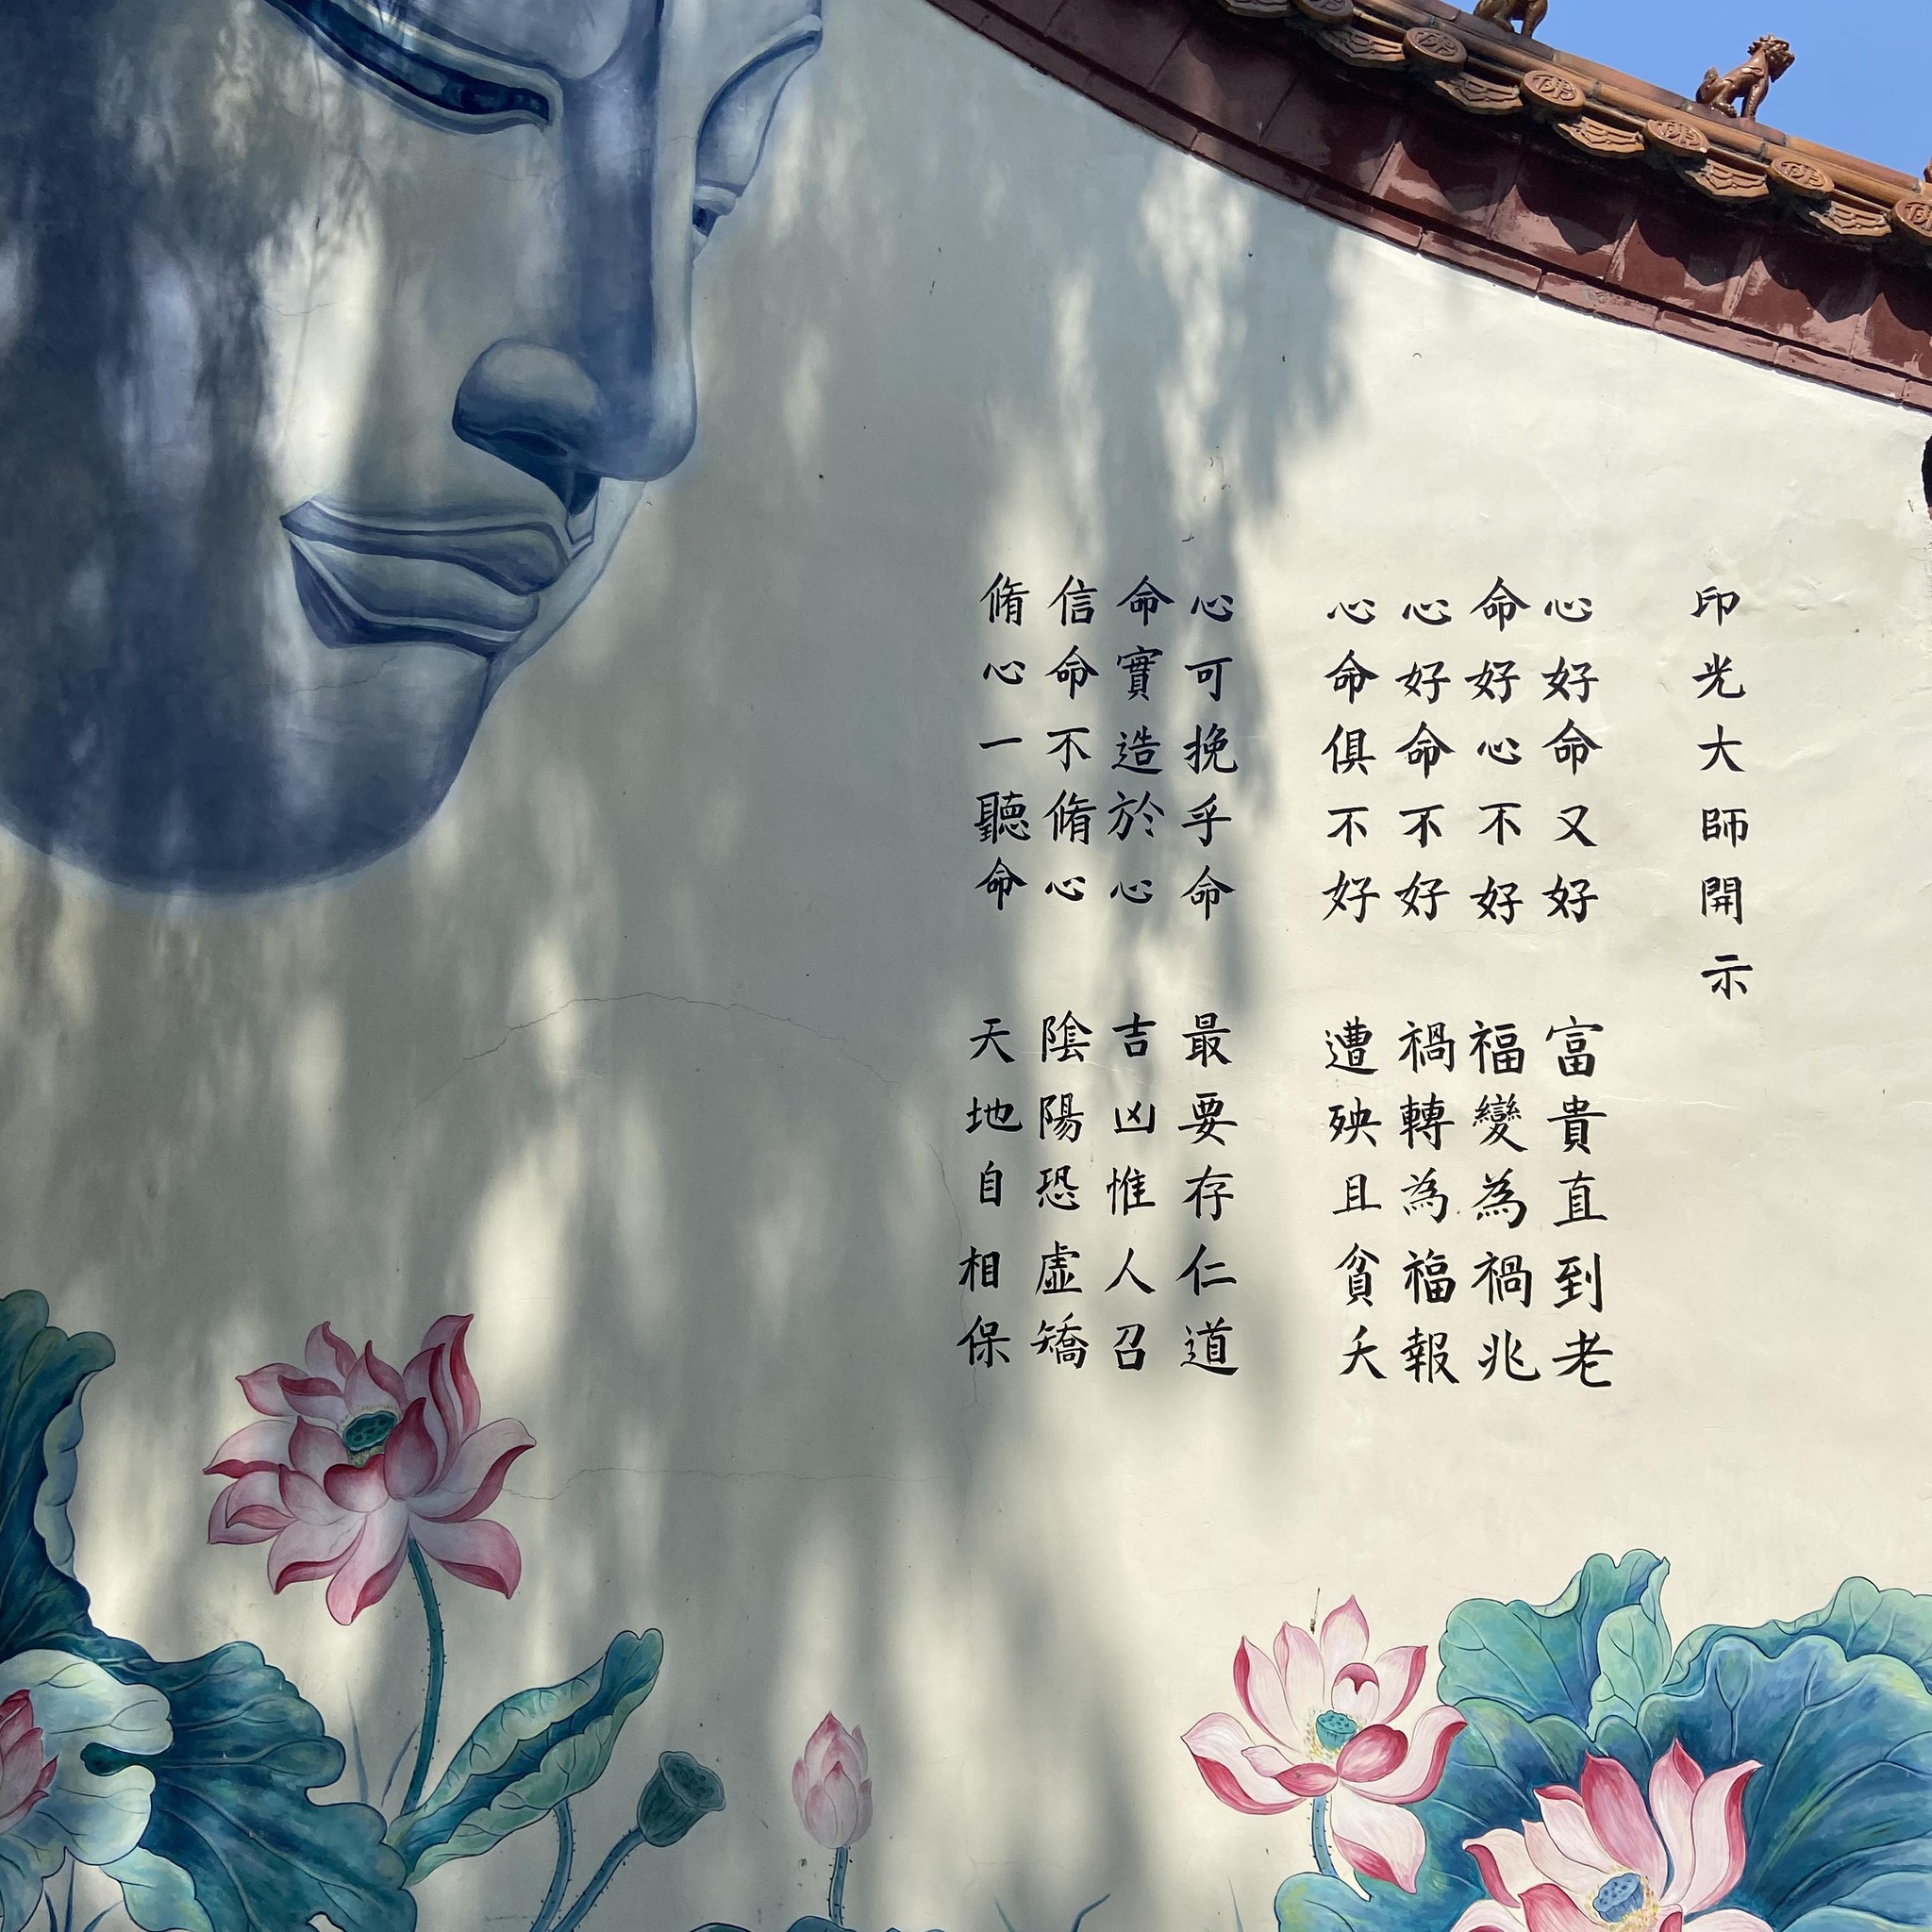 印光大師開示
心好命又好 富貴直到老
命好心不好 福變為禍兆
心好命不好 禍轉為福報
心命俱不好 遭殃且貧夭
心可挽乎命 最要存仁道
命實造於心 吉凶惟人召
信命不脩心 陰陽恐虛矯
脩心一聽命 天地自相保
佛
佛
佛
佛
佛